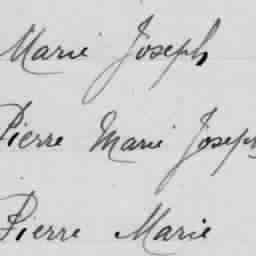 Marie Joseph
Pierre Marie Joseph
Pierre Marie